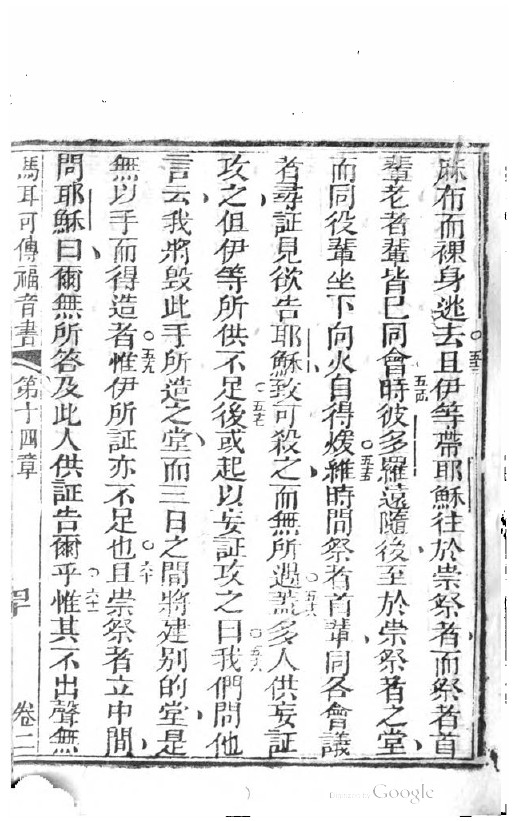 麻布而裸身逃去○五三且伊等帶耶穌往於祟祭者而祭者首
輩老者輩皆已同會時○五四彼多羅遠隨後至於祟祭者之堂
而同役輩坐下向火自得煖○五五維時問祭者首輩同各會議
者尋証見欲告耶穌致可殺之而無所遇○五六蓋多人供妄証
攻之但伊等所供不足○五七後或起以妄証攻之曰○五八我們問他
言云我將毀此手所造之堂而三日之間將建别的堂是
無以手而得造者○五九惟伊所証亦不足也○六十且祟祭者立中間
問耶穌曰爾無所答及此人供証告爾乎○六十一惟其不出聲無
馬耳可傳福音書 第十四章 四十 卷二
Digitized by Google